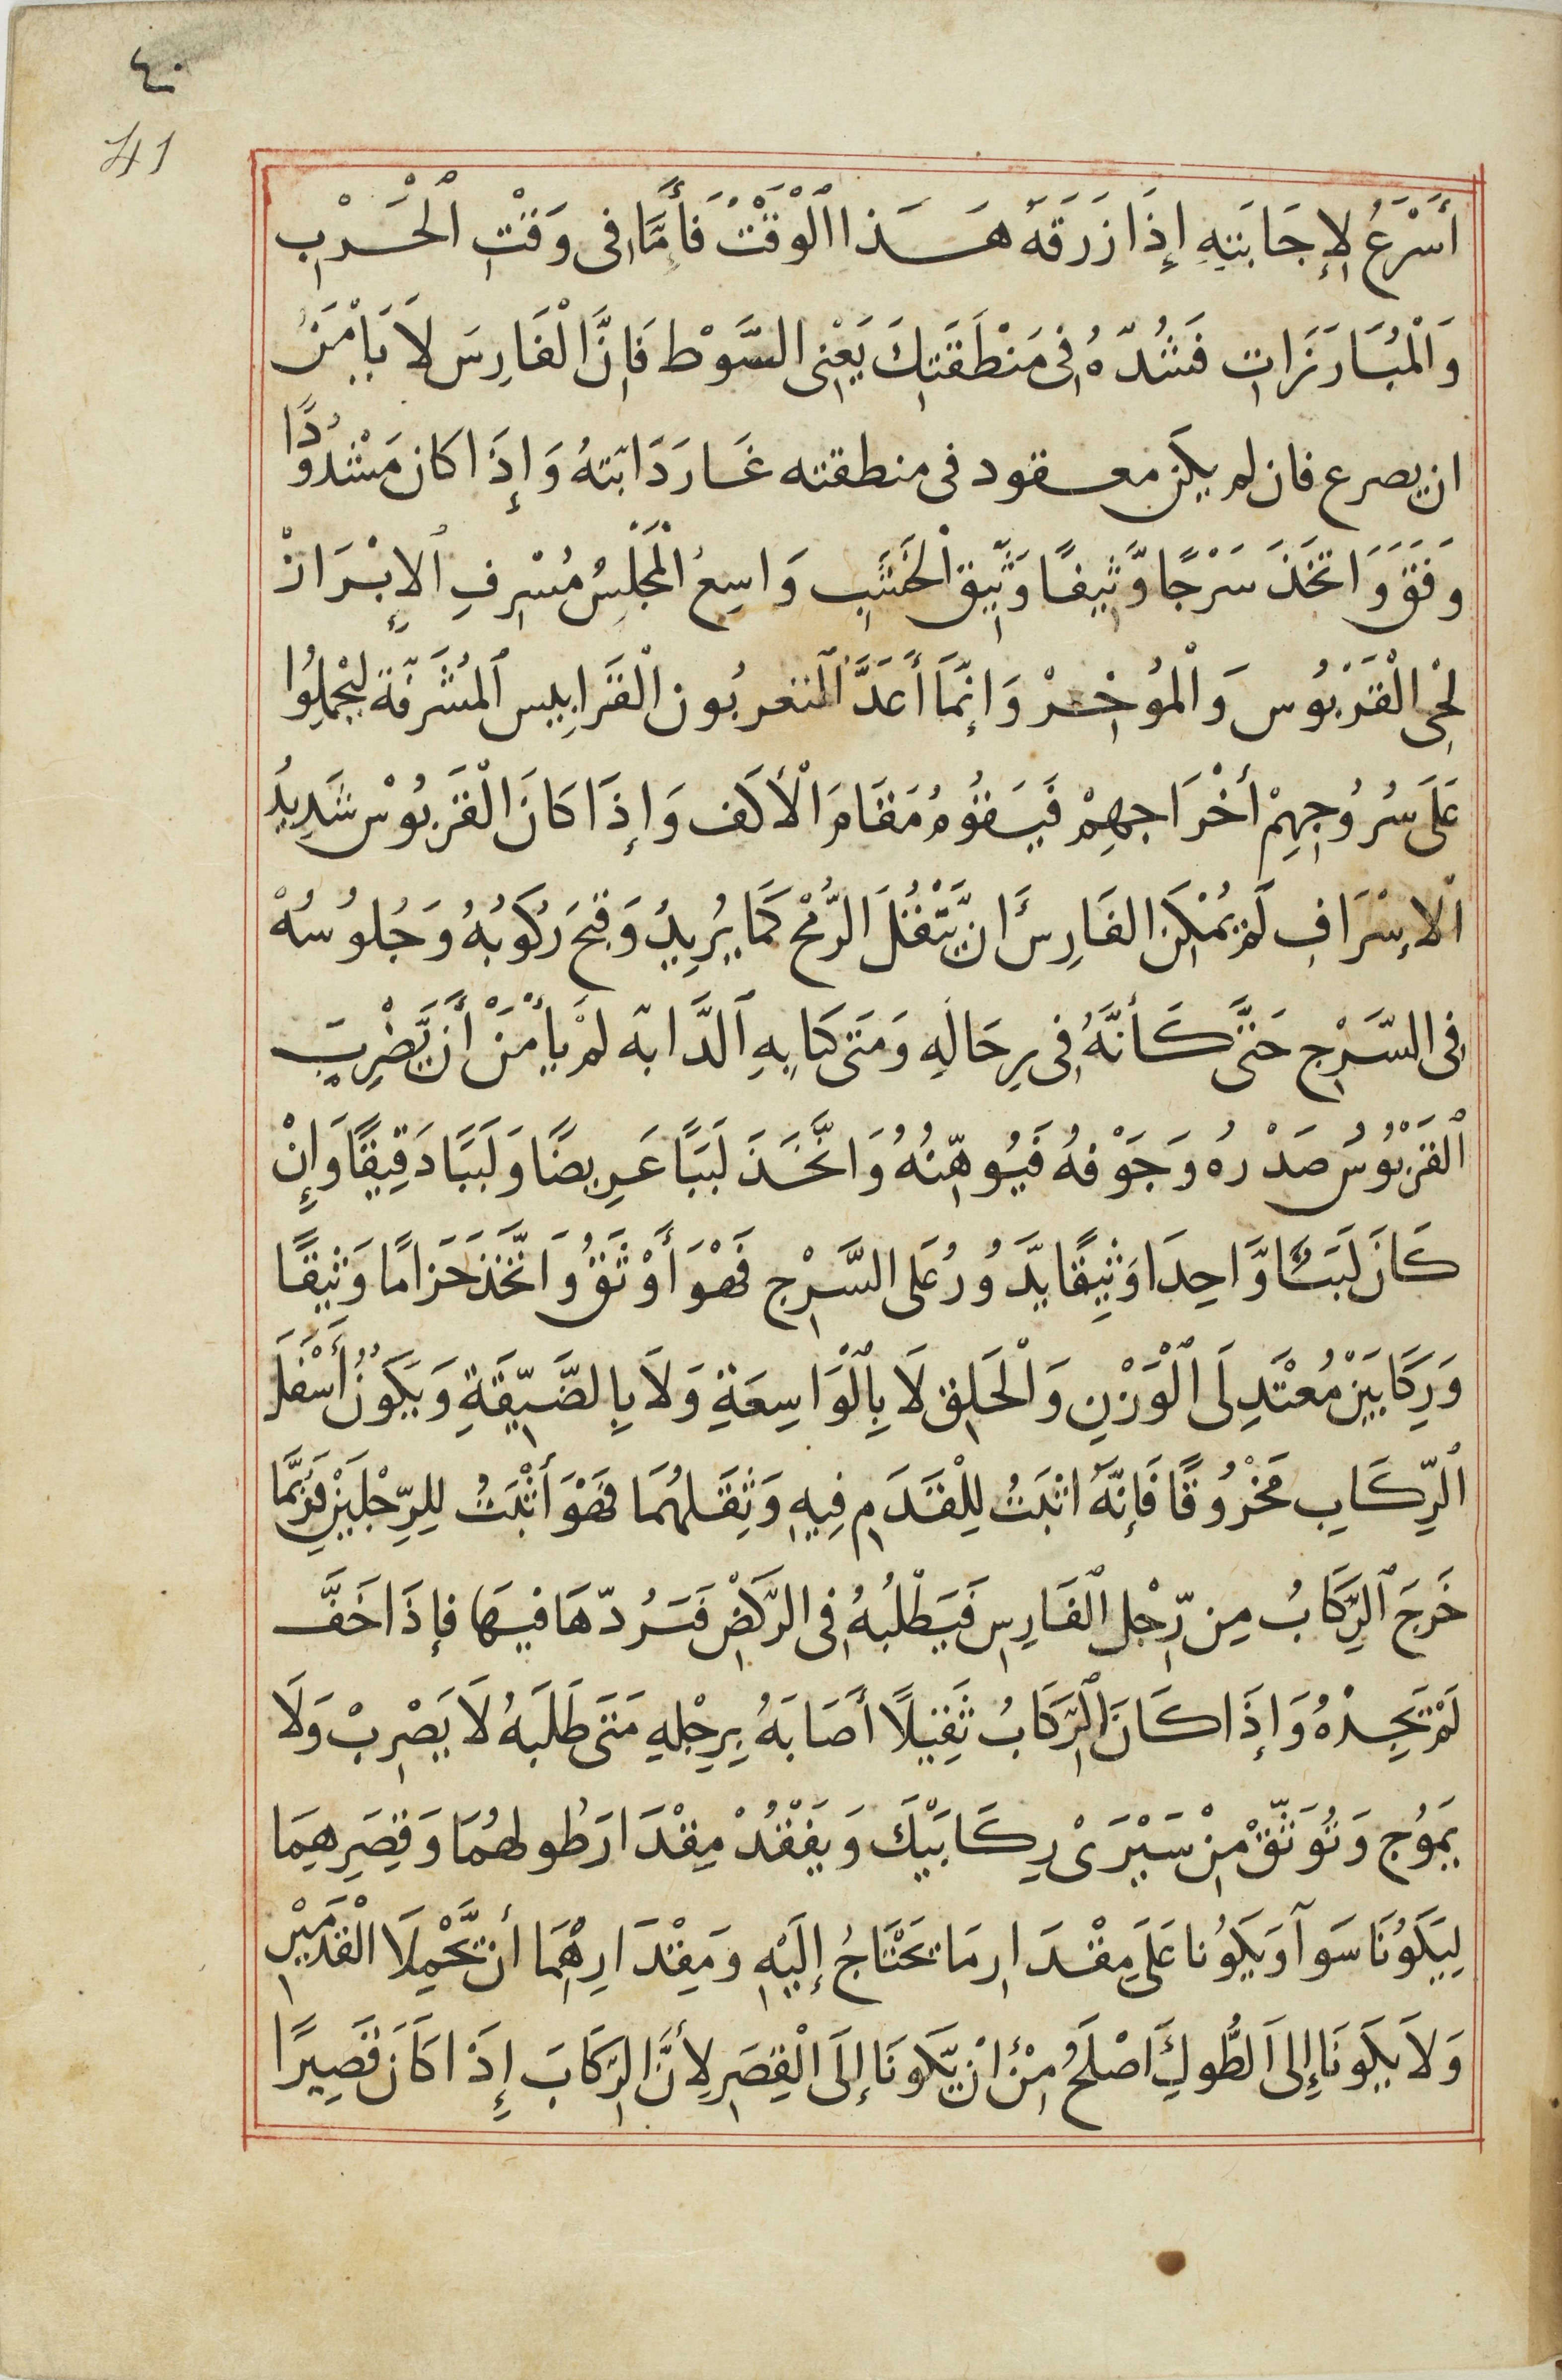 ٤٠
41
أَسْرَعُ لِإِجَابَتِهِ إِذَا زَرَقَهُ هَذَا ٱلْوَقْتُ فَأَمَّا فِى وَقْتِ ٱلْحَرْبِ
وَالْمُبَارَزَاتِ فَشُدَّهُ فِى مَنْطَقَتِكَ يَعْنِى السَّوْط فَإِنَّ الْفَارِسَ لَا يَأْمَنُ
ان يصرع فان لم يكن معقود فى منطقته غَارَ دَابَّتهُ وَإِذَا كان مَشْدُودًا
وَقَفَ وَاتَّخَذَ سَرْجًا وَّثِيقًا وَثِيقَ الْخَشَبِ وَاسِعُ الْمَجْلِسُ مُسْرِفِ ٱلإِبْرَازْ
لِحْىِ الْقَرْبُوس وَالْمُؤخِرْ وَإِنَّمَا أَعَدَّ ٱلمنعربُون الْقَرَابِيس ٱلمُشَرَفَّة لِيَحْمِلُوا
عَلَى سُرُوجِهِمْ أَخْرَاجِهِمْ فَيَقُومُ مَقَامَ الْأَكَف وَإِذَا كَانَ الْقَرَبُوسْ شَدِيدُ
الْإِسْرَافِ لَمْ يُمْكِنَ الفَارِسَ أَن يَّتْفُلَ الرُّمْحَ كَمَا يُرِيدُ وَقبحَ رُكُوبُهُ وَجُلُوسُهْ
فِى السَّرْجِ حَتَّى كَأَنَّهُ فِى رِحَالِهِ وَمَتَى كَبَابِهِ ٱلدَّابه لَمْ يَأْمَنْ أَن يَّضْرِبَ
ٱلْقَرْبُوسُ صَدْرُه وَجَوْفهُ فَيُوهِّنُهُ وَاتَّخَذَ لَبَبًا عَرِيضًا وَلَبَبًا دَقِيقًا وَإِنْ
كَانَ لَبَبًا وَّاحِدَا وَثِيقًا يَّدُورُ عَلَى السَّرْجِ فَهْوَ أَوْثَقُ وَاتَّخَذَ حَزَامًا وَثِيقًا
وَرِكَابَيْنِ مُعْتَدِلَى ٱلْوَزْنِ وَالْحَلِقِ لَا بِٱلْوَاسِعَةِ وَلَا بِالضَّيِّقَةِ وَيَكُونُ أَسْفَلَ
ٱلرِّكَابِ مَخْرُوقًا فَإِنَّهُ اثبَتُ لِلْقَدَمِ فِيهِ وَثِقَلهُمَا فَهْوَ أَثْبَتُ لِلرِّجْلَيْنِ فَرُبَّمَا
خَرَجَ ٱلرِّكَابُ مِن رِّجْلِ ٱلْفَارِسِ فَيَطْلُبُهُ فِى الرَّكْضِ فَتَرُدّهَا فِيهَا فإِذَا خَفَّ
لَمْ تَجِدْهُ وَإِذَا كَانَ ٱلرِّكَابُ ثَقِيلًا أَصَابَهُ بِرِجْلِهِ مَتَى طَلَبَهُ لَا يَضْرِبْ وَلَا
يَمُوج وَتُوَثِّقْ مِنْ سَيْرَىْ رِكَابَيْكَ وَيَفْقُدْ مِقْدَارَ طُولهُمَا وَقِصَرِهِمَا
لِيَكُونَا سَوآ وَيَكُونا عَلَى مِقْدَارِ مَا تَحْتَاجُ إِلَيْهِ وَمِقْدَارِهُمَا أن تَّحْمِلَا الْقَدَمَيْنِ
وَلَا يَكُونَا إِلَى الطُّولِ أَصْلَحُ مِنْ أَن يَّكُونَا إِلَى الْقِصَرِ لِأَنَّ الرِّكَابَ إِذَا كَانَ قَصِيرًا